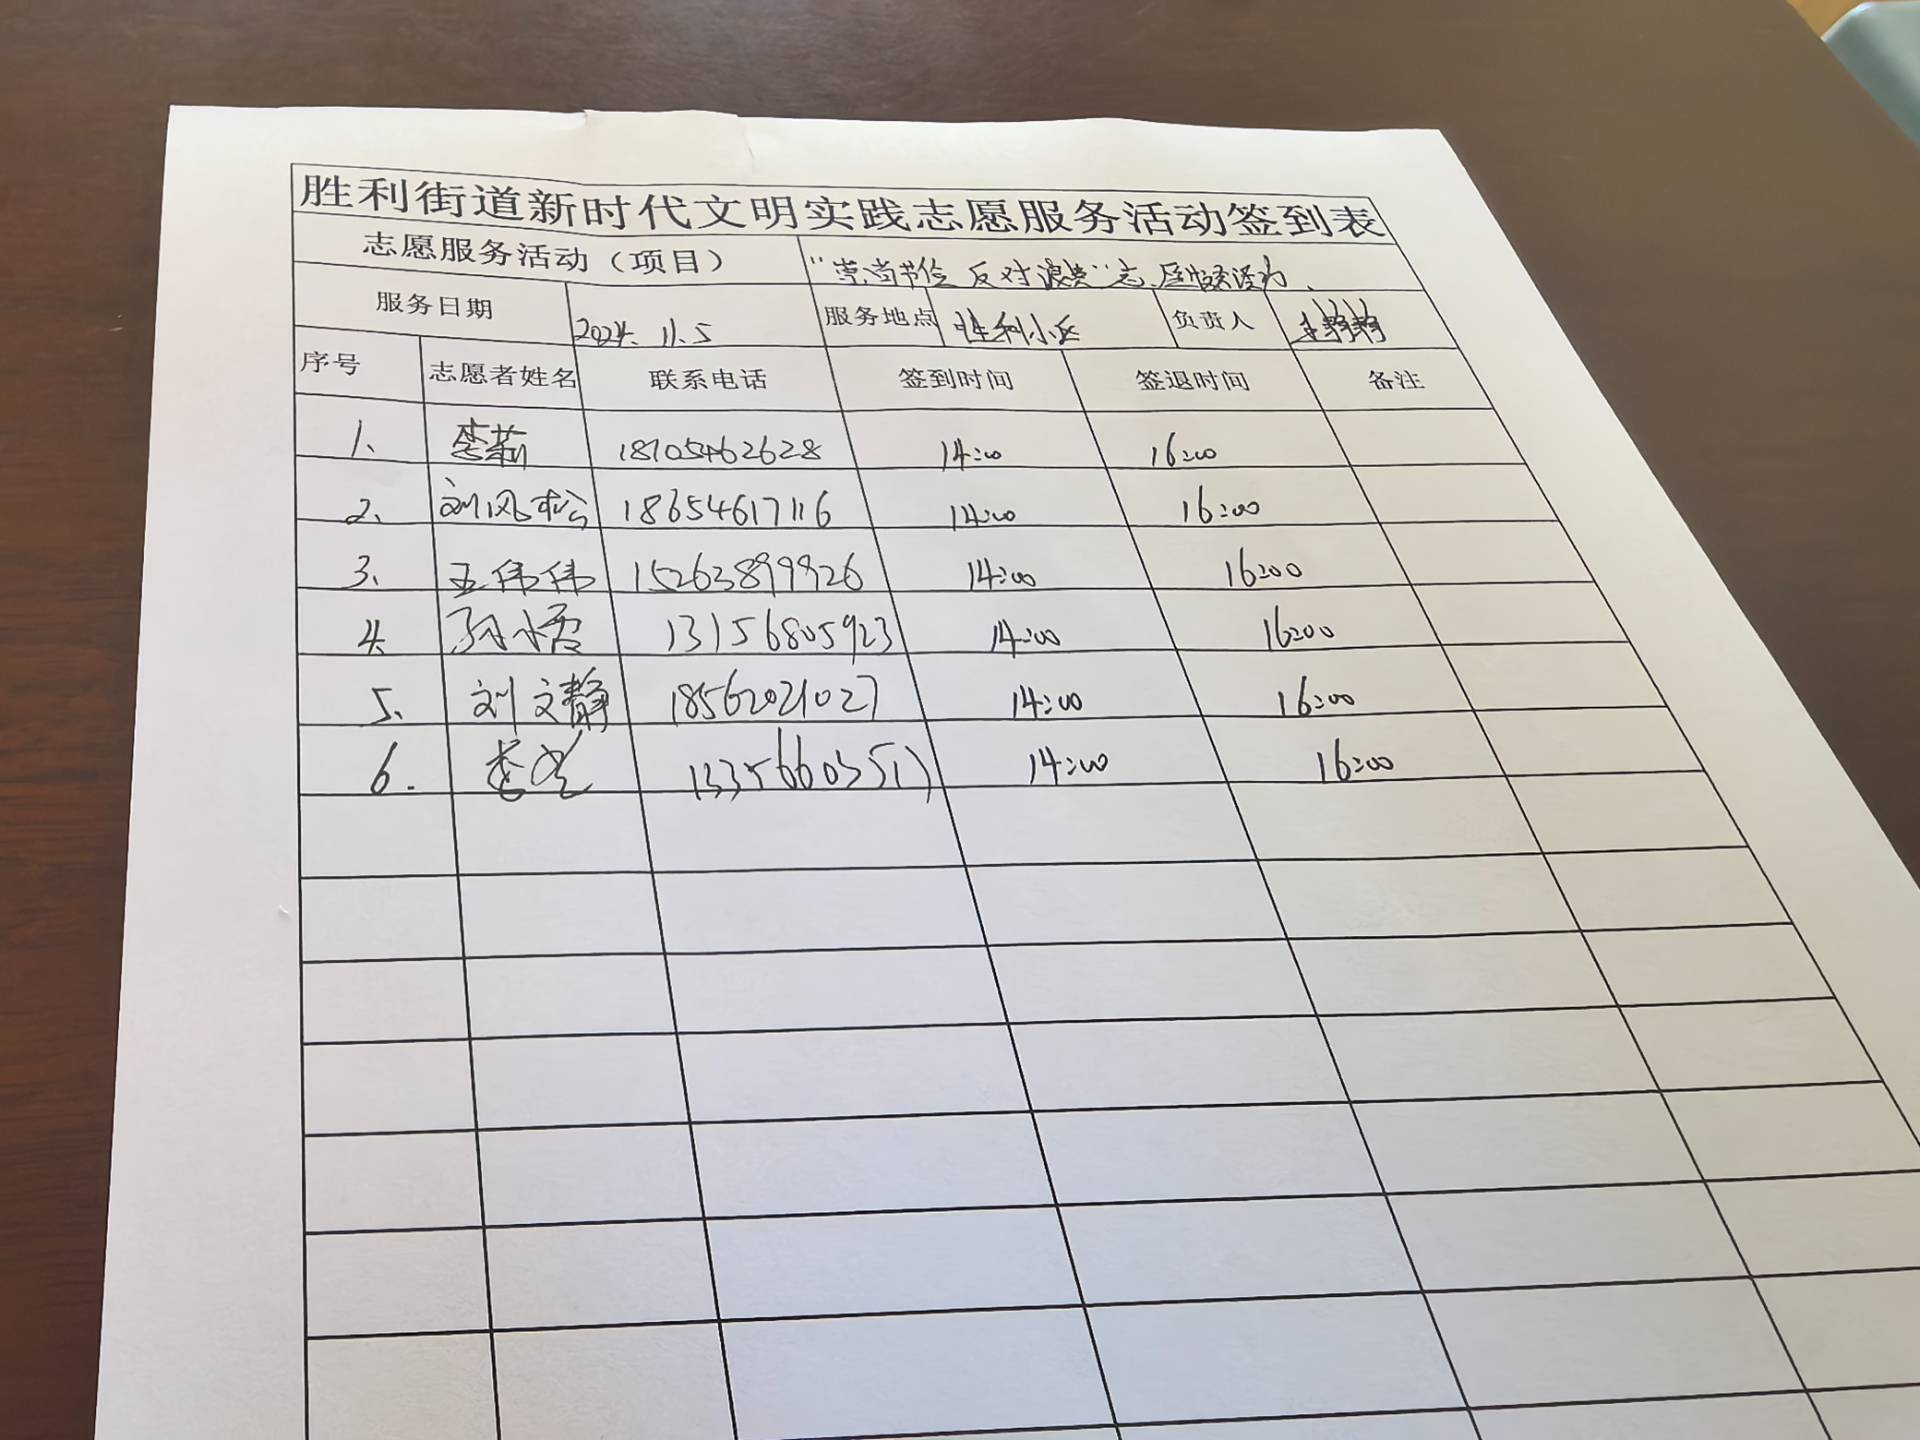 胜利街道新时代文明实践志愿服务活动签到表
志愿服务活动（项目） “崇尚节俭 反对浪费”志愿服务活动.
服务日期 2024. 11. 5 服务地点 胜利小区 负责人
序号 志愿者姓名 联系电话 签到时间 签退时间 备注
1、 李莉 18705462628 14:00 16:00
2、 刘风松 18654617116 14:00 16:00
3、 王伟伟 15263899926 14:00 16:00
4. 孙小霞 13156805923 14:00 16:00
5、 刘文静 18562021027 14:00 16:00
6. 14:00 16:00